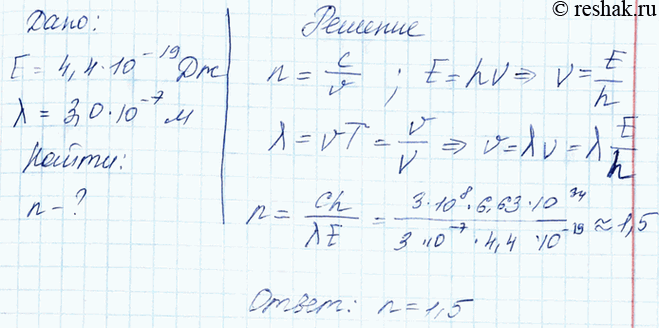 © reshak.ru
Дано:
E = 4,4·10⁻¹⁹ Дж
λ = 3,0·10⁻⁷ м
Найти:
n - ?
Решение
n = c/v ; E = hν ⇒ ν = E/h
λ = vT = v/ν ⇒ v = λν = λ E/h
n = ch/λE = 3·10⁸·6,63·10³⁴/3·10⁻⁷·4,4·10⁻¹⁹ ≈ 1,5
Ответ: n = 1,5